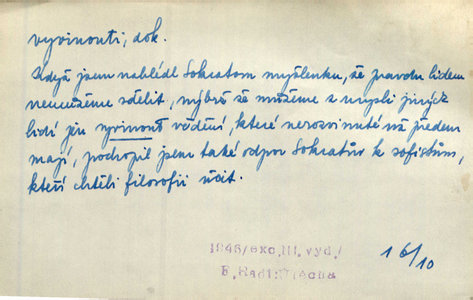 vyvinouti, dok.
Když jsem nahlédl Sokratovu myšlenku, že pravdu lidem
nemůžeme sdělit, nýbrž že můžeme z mysli jiných
lidí jen vyvinout vědění, které nerozvinuté už předem
mají, pochopil jsem také odpor Sokratův k sofistům,
kteří chtěli filosofii učit.
1946/exc. III. vyd./
E. Rádl:
16/10